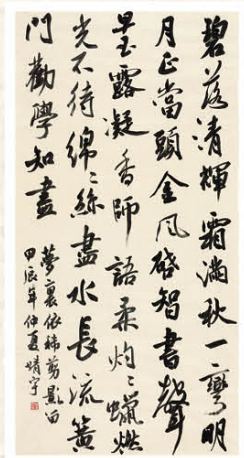 碧落清輝霜滿秋一彎明
月正當頭金風啓智書聲
里玉露凝香師語柔灼灼蠟燃
光不待綿綿絲盡水長流黌
門勸學知盡
夢裏依稀剪影留
甲辰年仲夏婧宇